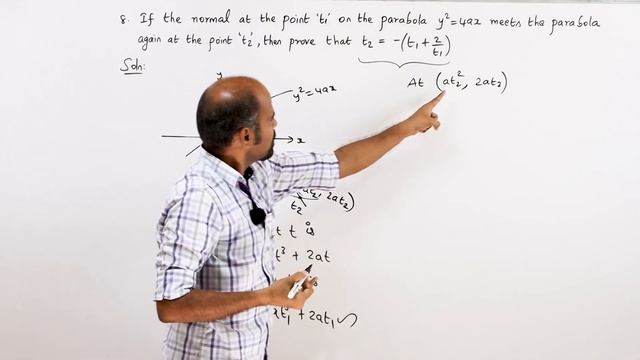 8. If the normal at the point 't₁' on the parabola y²=4ax meets the parabola
again at the point 't₂', then prove that t₂ = -(t₁ + 2/t₁)
Soln:
At (at₂², 2at₂)
y
y²=4ax
x
, 2at₂)
t₂
t t is
t³ + 2at
t₁³ + 2at₁